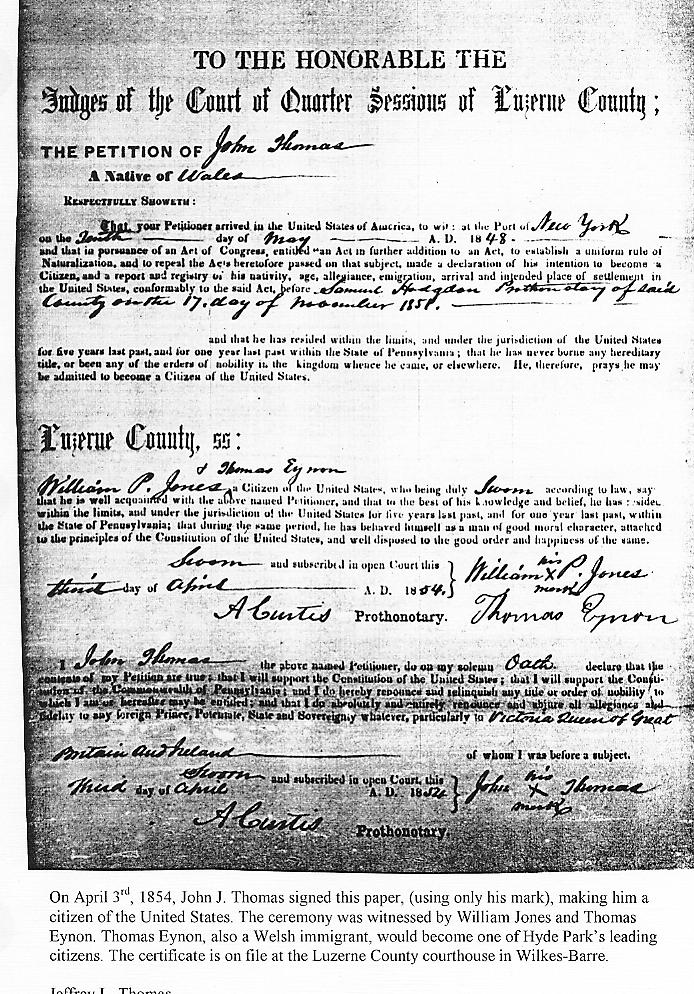 TO THE HONORABLE THE
Judges of the Court of Quarter Sessions of Luzerne County;
THE PETITION OF John Thomas
A Native of Wales
RESPECTFULLY SHOWETH:
That, your Petitioner arrived in the United States of America, to wit: at the Port of New York
on the Tenth day of May A. D. 1848.
and that in pursuance of an Act of Congress, entitled "an Act in further addition to an Act, to establish a uniform rule of
Naturalization, and to repeal the Acts heretofore passed on that subject, made a declaration of his intention to become a
Citizen, and a report and registry of his nativity, age, allegiance, emigration, arrival and intended place of settlement in
the United States, conformably to the said Act, before Samuel Hodgdon Prothonotary of said
County on the 17. day of November 1851.
and that he has resided within the limits, and under the jurisdiction of the United States
for five years last past, and for one year last past within the State of Pennsylvania; that he has never borne any hereditary
title, or been any of the orders of nobility in the kingdom whence he came, or elsewhere. He, therefore, prays he may
be admitted to become a Citizen of the United States.
Luzerne County, ss:
& Thomas Eynon
William P. Jones, a Citizen of the United States, who being duly Sworn according to law, say
that he is well acquainted with the above named Petitioner, and that to the best of his knowledge and belief, he has resided
within the limits, and under the jurisdiction of the United States for five years last past, and for one year last past, within
the State of Pennsylvania; that during the same period, he has behaved himself as a man of good moral character, attached
to the principles of the Constitution of the United States, and well disposed to the good order and happiness of the same.
Sworn and subscribed in open Court this
third day of April A. D. 1854.
William his X mark P. Jones
A Curtis Prothonotary. Thomas Eynon
I John Thomas the above named Petitioner, do on my solemn Oath declare that the
contents of my Petition are true; that I will support the Constitution of the United States; that I will support the Consti-
tution of the Commonwealth of Pennsylvania; and I do hereby renounce and relinquish any title or order of nobility to
which I am or hereafter may be entitled; and that I do absolutely and entirely renounce and abjure all allegiance and
fidelity to any foreign Prince, Potentate, State and Sovereignty whatever, particularly to Victoria Queen of Great
Britain and Ireland of whom I was before a subject.
Sworn and subscribed in open Court, this
third day of April A. D. 1854
John his X mark Thomas
A Curtis Prothonotary.
On April 3rd, 1854, John J. Thomas signed this paper, (using only his mark), making him a
citizen of the United States. The ceremony was witnessed by William Jones and Thomas
Eynon. Thomas Eynon, also a Welsh immigrant, would become one of Hyde Park's leading
citizens. The certificate is on file at the Luzerne County courthouse in Wilkes-Barre.
Jeffrey L. Thomas